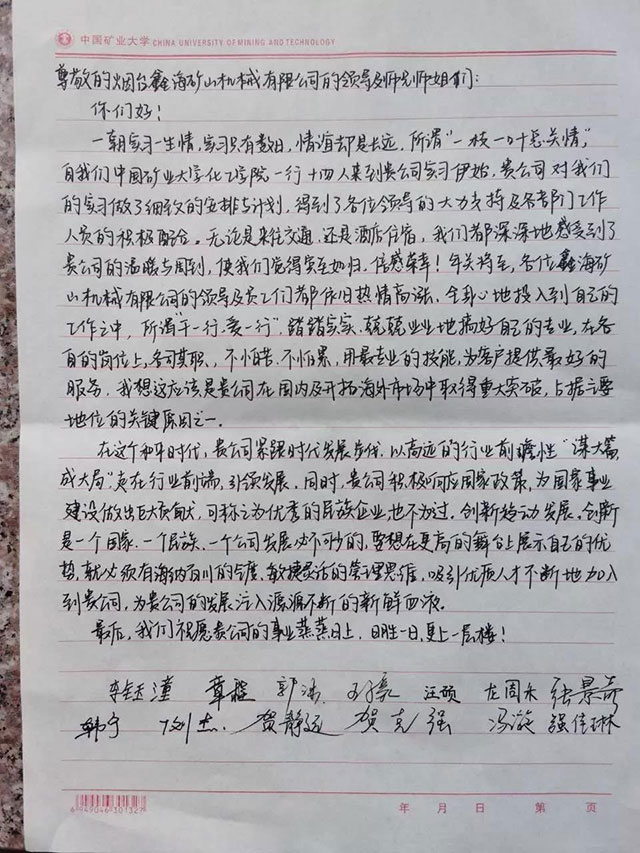 中国矿业大学 CHINA UNIVERSITY OF MINING AND TECHNOLOGY
尊敬的烟台鑫海矿山机械有限公司的领导及师兄师姐们：
你们好！
一朝实习一生情，实习只有数日，情谊却是长远，所谓"一枝一叶总关情"，
自我们中国矿业大学化工学院一行十四人来到贵公司实习伊始，贵公司对我们
的实习做了细致的安排与计划，得到了各位领导的大力支持及各部门工作
人员的积极配合。无论是来往交通，还是酒店住宿，我们都深深地感受到了
贵公司的温暖与周到，使我们觉得宾至如归，倍感荣幸！年关将至，各位鑫海矿
山机械有限公司的领导及员工们都依旧热情高涨，全身心地投入到自己的
工作之中，所谓"干一行，爱一行"，踏踏实实、兢兢业业地搞好自己的专业，在各
自的岗位上，各司其职、不怕苦、不怕累，用最专业的技能，为客户提供最好的
服务，我想这应该是贵公司在国内及开拓海外市场中取得重大突破，占据主要
地位的关键原因之一.
在这个和平时代，贵公司紧跟时代发展步伐，以高远的行业前瞻性"谋大篇，
成大局"走在行业前端，引领发展，同时，贵公司积极响应国家政策，为国家事业
建设做出巨大贡献，可称之为优秀的民族企业也不为过。创新推动发展，创新
是一个国家、一个民族、一个公司发展必不可少的，要想在更高的舞台上展示自己的优
势，就必须有海纳百川的气度、敏捷灵活的管理思维，吸引优质人才不断地加入
到贵公司，为贵公司的发展注入源源不断的新鲜血液。
最后，我们祝愿贵公司的事业蒸蒸日上，日胜一日，更上一层楼！
李钰潼 章程 郭 汪颐 左周永 张景
韩宁 刘杰 贺静远 贺克强 冯漩 强佳琳
6 949046 301327
年 月 日 第 页